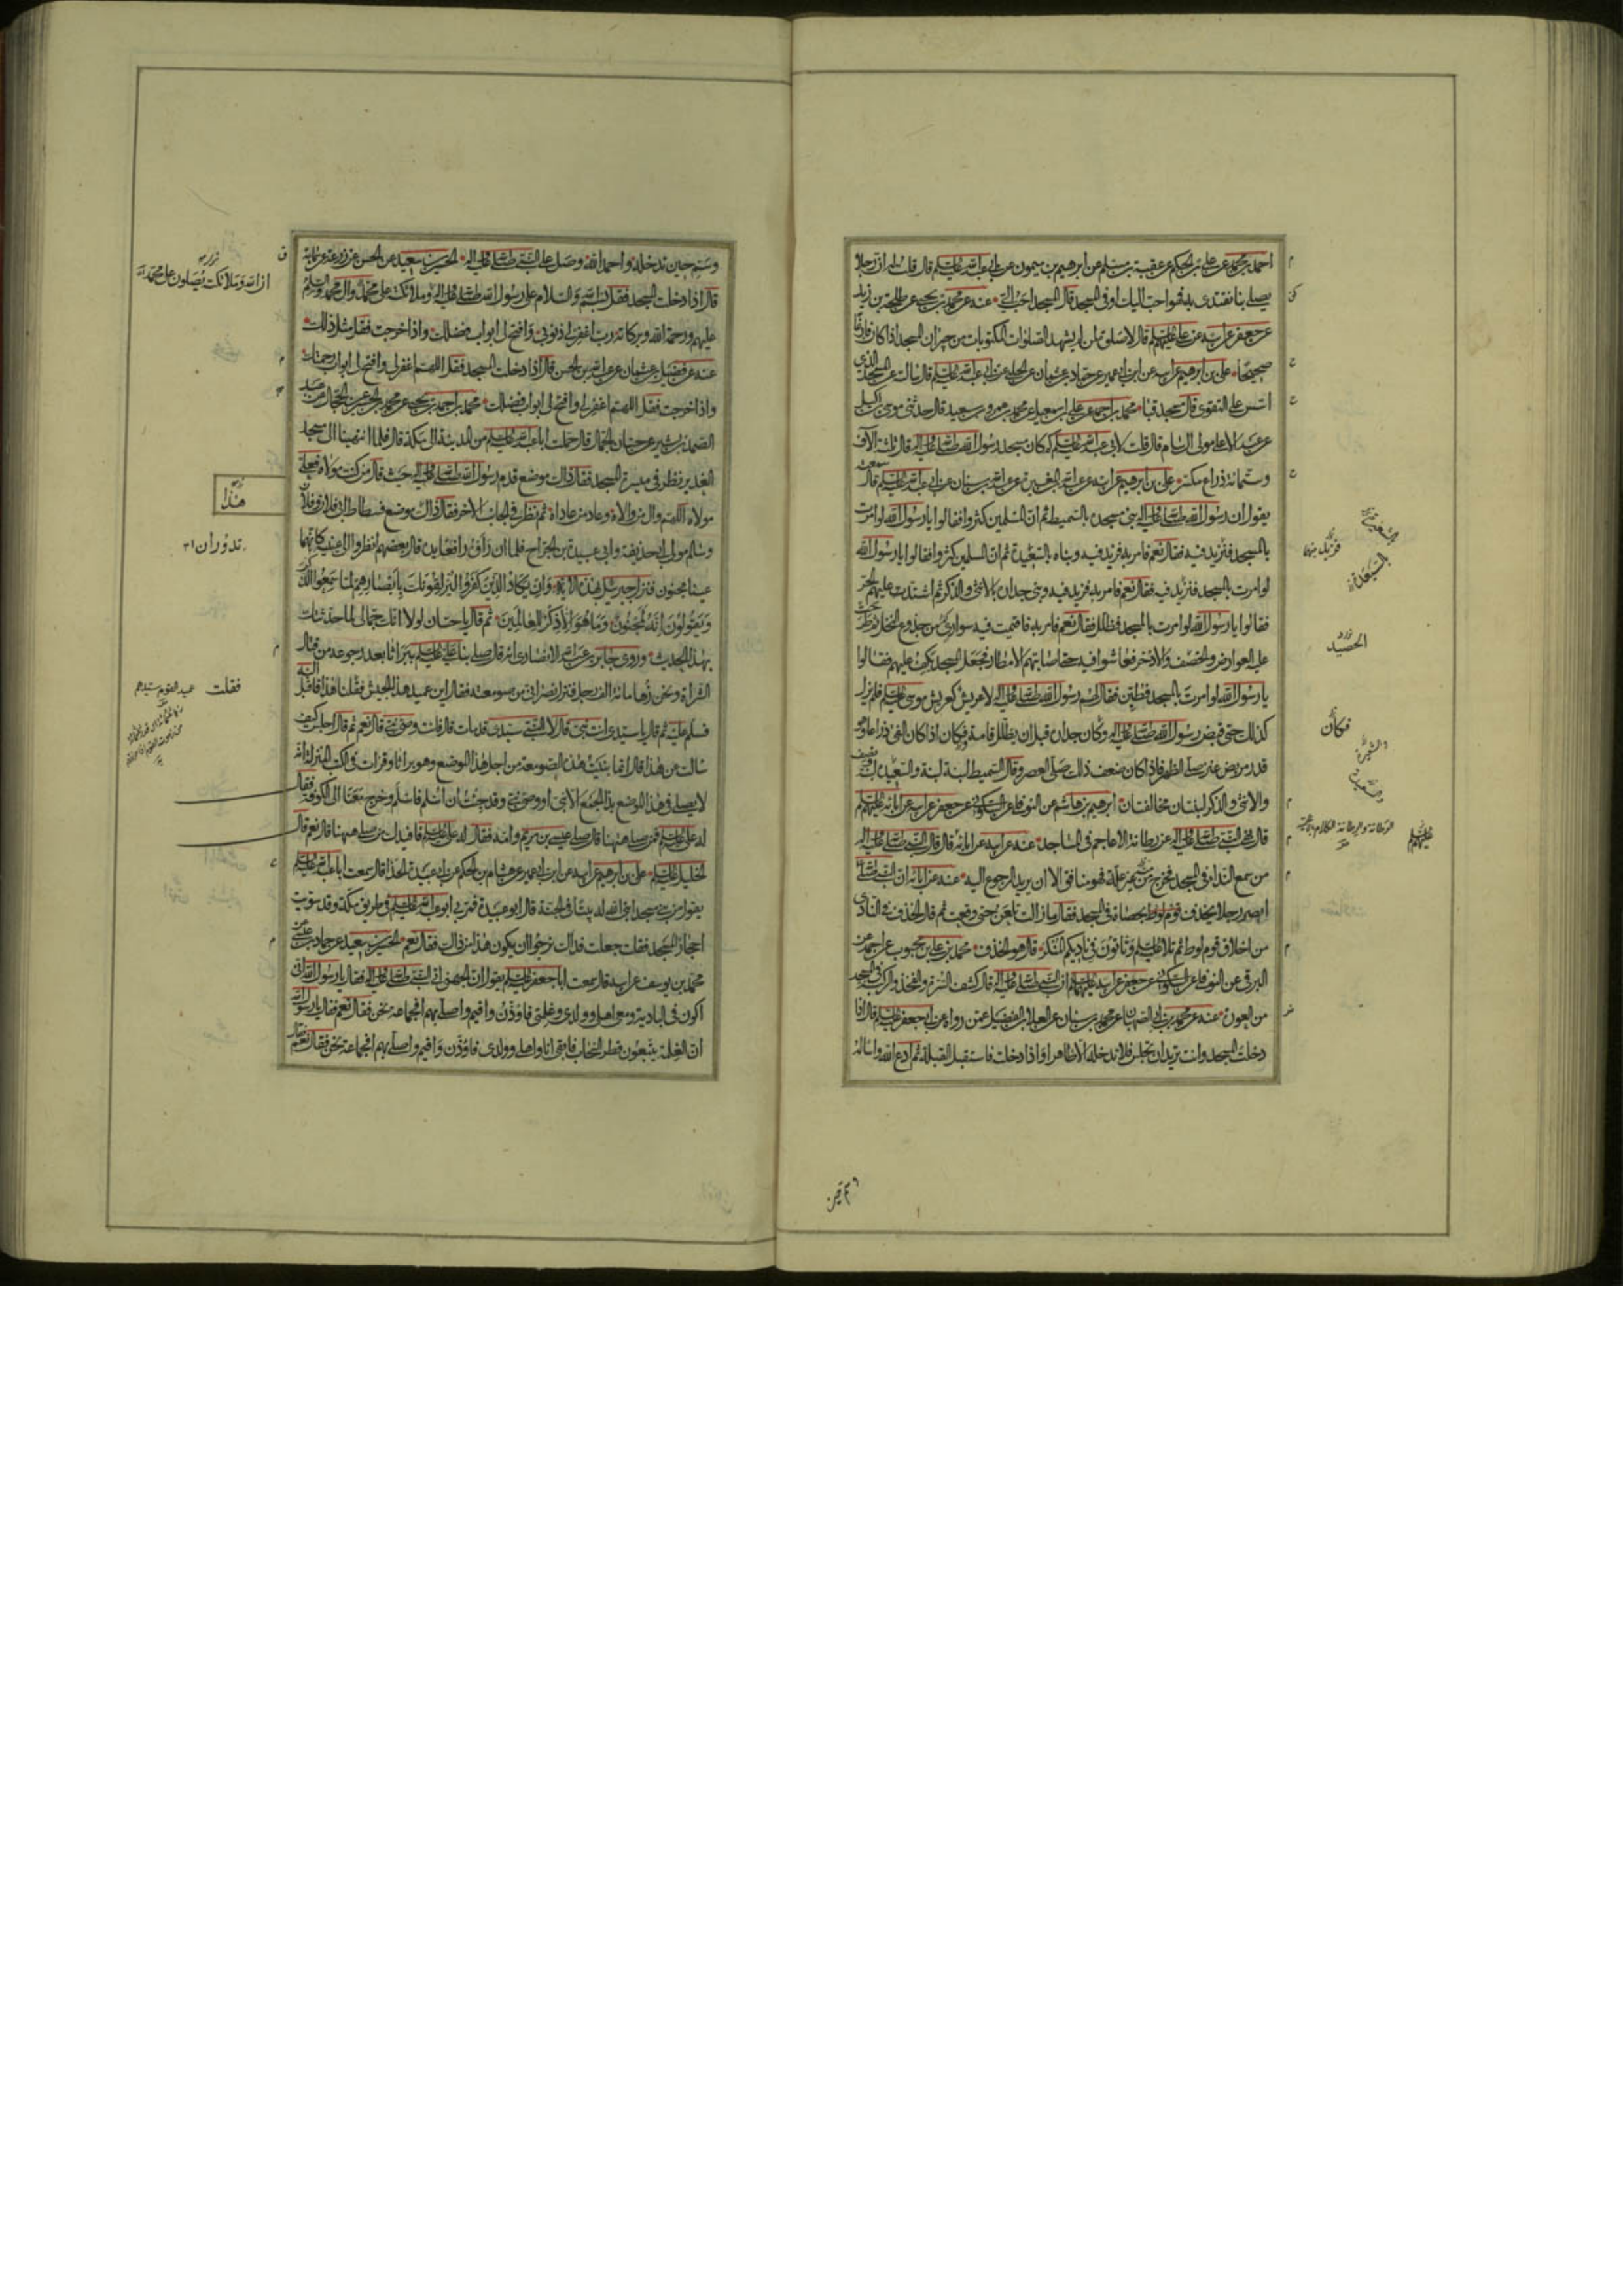 احمد بن محمد عن علي بن الحكم عن عقبة بن مسلم عن ابرهيم بن ميمون عن ابي عبد الله عليه السلم قال قلت له ان رجلا
يصلي بنا نقتدى به فهو احب اليك او في المسجد قال المسجد احب الي عنه عن محمد بن يحيى عن طلحة بن زيد
عن جعفر عن ابيه عن علي عليهم السلم قال لا صلوة لمن لم يشهد الصلوات المكتوبات من جيران المسجد اذا كان فارغا
صحيحا علي بن ابرهيم عن ابيه عن ابن ابي عمير عن حماد بن عثمان عن الحلبي عن ابي عبد الله عليه السلم قال سالته عن المسجد الذي
اسس على التقوى قال مسجد قبا محمد بن احمد عن علي بن اسمعيل عن محمد بن عمرو بن سعيد قال حدثني موسى بن اكيل
عن عبد الاعلى مولى ال سام قال قلت لابي عبد الله عليه السلم كم كان مسجد رسول الله صلى الله عليه واله قال ثلثة الاف
وستمائة ذراع مكسر علي بن ابرهيم عن ابيه عن عبد الله بن المغيرة عن عبد الله بن سنان عن ابي عبد الله عليه السلم قال سمعته
يقول ان رسول الله صلى الله عليه واله بنى مسجده بالسميط ثم ان المسلمين كثروا فقالوا يا رسول الله لو امرت
بالمسجد فزيد فيه فقال نعم فامر به فزيد فيه وبناه بالسعيدة ثم ان المسلمين كثروا فقالوا يا رسول الله
لو امرت بالمسجد فزيد فيه فقال نعم فامر به فزيد فيه وبنى جداره بالانثى والذكر ثم اشتد عليهم الحر
فقالوا يا رسول الله لو امرت بالمسجد فظلل فقال نعم فامر به فاقيمت فيه سواري من جذوع النخل ثم طرحت
عليه العوارض والخصف والاذخر فعاشوا فيه حتى اصابتهم الامطار فجعل المسجد يكف عليهم فقالوا
يا رسول الله لو امرت بالمسجد فطين فقال لهم رسول الله صلى الله عليه واله لا عريش كعريش موسى عليه السلم فلم يزل
كذلك حتى قبض رسول الله صلى الله عليه واله وكان جداره قبل ان يظلل قامة وكان اذا كان الفئ ذراعا وهو
قدر مربض عنز صلى الظهر فاذا كان ضعف ذلك صلى العصر وقال السميط لبنة لبنة والسعيدة لبنة ونصف
والانثى والذكر لبنتان مخالفتان ابرهيم بن هاشم عن النوفلي عن السكوني عن جعفر عن ابيه عن ابائه عليهم السلم
قال نهى النبي صلى الله عليه واله عن رطانة الاعاجم في المساجد عنه عن ابيه عن ابائه قال قال النبي صلى الله عليه واله
من سمع النداء في المسجد فخرج من غير علة فهو منافق الا ان يريد الرجوع اليه عنه عن ابائه ان النبي صلى الله عليه واله
ابصر رجلا يخذف بحصاة في المسجد فقال ما زالت تلعن حتى وقعت ثم قال الخذف في النادي
من اخلاق قوم لوط ثم تلا عليه السلم وتاتون في ناديكم المنكر قال هو الخذف محمد بن علي بن محبوب عن احمد عن
البرقي عن النوفلي عن السكوني عن جعفر عن ابيه عليهما السلم ان النبي صلى الله عليه واله قال كشف السرة والفخذ والركبة في المسجد
من العورة عنه عن محمد بن محمد بن سنان عن العلا بن الفضيل عمن رواه عن ابي جعفر عليه السلم قال اذا
دخلت المسجد وانت تريد ان تجلس فلا تدخله الا طاهرا واذا دخلت فاستقبل القبلة ثم ادع الله واساله
فزيد فيه
الحصيد
فكان
عليهم السلم
وسم حين تدخله واحمد الله وصل على النبي صلى الله عليه واله الحسين بن سعيد عن الحسن عن زرعة عن سماعة
قال اذا دخلت المسجد فقل بسم الله والسلام على رسول الله صلى الله عليه واله وملائكته على محمد وال محمد والسلام
عليهم ورحمة الله وبركاته رب اغفر لي ذنوبي وافتح لي ابواب فضلك واذا خرجت فقل مثل ذلك
عنه عن فضيل بن عثمان عن عبد الله بن الحسن قال اذا دخلت المسجد فقل اللهم اغفر لي وافتح لي ابواب رحمتك
واذا خرجت فقل اللهم اغفر لي وافتح لي ابواب فضلك محمد بن احمد بن يحيى عن محمد بن الحسين عن الحجال عن عبد
الصمد بن بشير عن حسان الجمال قال حملت ابا عبد الله عليه السلم من المدينة الى مكة قال فلما انتهينا الى مسجد
الغدير نظر في ميسرة المسجد فقال ذاك موضع قدم رسول الله صلى الله عليه واله حيث قال من كنت مولاه فعلي
مولاه اللهم وال من والاه وعاد من عاداه ثم نظر في الجانب الاخر فقال ذاك موضع فسطاط ابي فلان وفلان
وسالم مولى ابي حذيفة وابي عبيدة بن الجراح فلما ان راوه رافعا يده قال بعضهم انظروا الى عينيه كانهما
عينا مجنون فنزل جبرئيل بهذه الاية وان يكاد الذين كفروا ليزلقونك بابصارهم لما سمعوا الذكر
ويقولون انه لمجنون وما هو الا ذكر للعالمين ثم قال يا حسان لولا انك جمالي لما حدثتك
بهذا الحديث وروى جابر بن عبد الله الانصاري انه قال صلى بنا علي عليه السلم ببراثا بعد رجوعه من قتال
الشراة ونحن زهاء مائة الف رجل فنزل نصراني من صومعته فقال اين عميد هذا الجيش فقلنا هذا فاقبل اليه
فسلم عليه ثم قال يا سيدي انت نبي قال لا النبي سيدي قد مات قال فانت وصي نبي قال نعم ثم قال اجلس كيف
سالت عن هذا قال انما بنيت هذه الصومعة من اجل هذا الموضع وهو براثا وقرات في الكتب المنزلة انه
لا يصلي في هذا الموضع بذا الجمع الا نبي او وصي نبي وقد جئت ان اسلم فاسلم وخرج معنا الى الكوفة فقال
له علي عليه السلم فمن صلى ههنا قال صلى عيسى بن مريم وامه فقال له علي عليه السلم فافيدك من صلى ههنا قال نعم قال
الخليل عليه السلم علي بن ابرهيم عن ابيه عن ابن ابي عمير عن هشام بن الحكم عن ابي عبيدة الحذا قال سمعت ابا عبد الله عليه السلم
يقول من بنى مسجدا بنى الله له بيتا في الجنة قال ابو عبيدة فمر بي ابو عبد الله عليه السلم في طريق مكة وقد سويت
احجار المسجد فقلت جعلت فداك نرجوا ان يكون هذا من ذاك فقال نعم الحسين بن سعيد عن حماد بن عيسى عن
محمد بن يوسف عن ابيه قال سمعت ابا جعفر عليه السلم يقول ان الجهني اتى النبي صلى الله عليه واله فقال يا رسول الله اني
اكون في البادية ومعي اهلي وولدي وغلمتي فاؤذن واقيم واصلي بهم افجماعة نحن فقال نعم فقال يا رسول الله
ان الغلمة يتبعون قطر السحاب فابقى انا واهلي وولدي فاؤذن واقيم واصلي بهم افجماعة نحن فقال نعم فقال
ان الله وملائكته يصلون على محمد
هذا
تدوران
فقلت